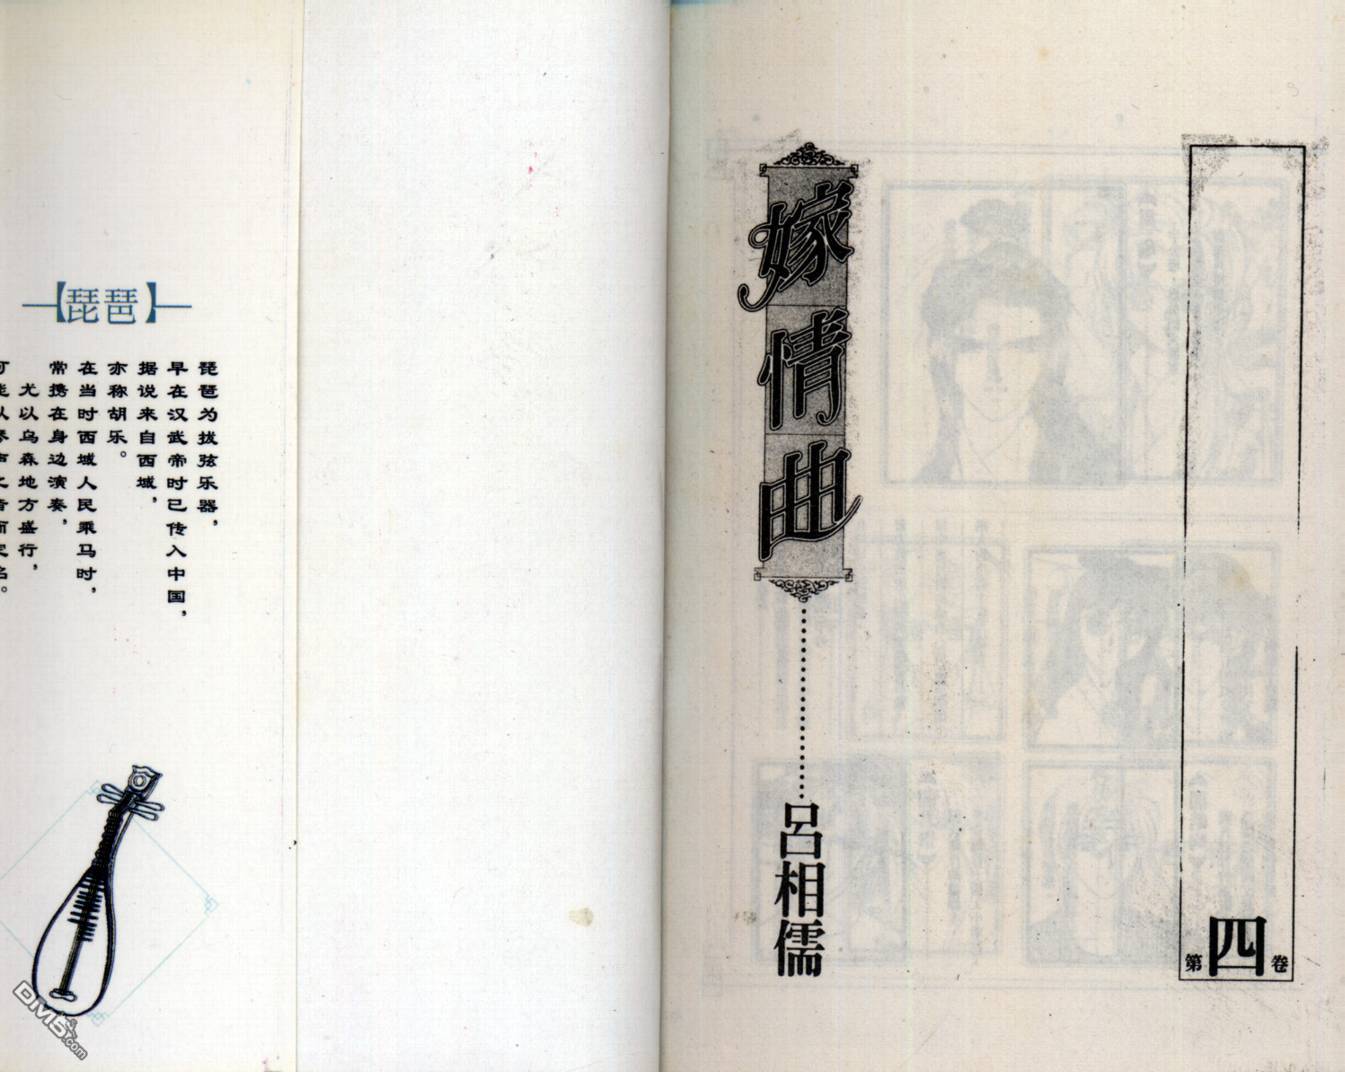 【琵琶】
琵琶为拔弦乐器，
早在汉武帝时已传入中国，
据说来自西域，
亦称胡乐。
在当时西域人民乘马时，
常携在身边演奏，
尤以乌森地方盛行，
嫁情曲
呂相儒
第四卷
DM5.com